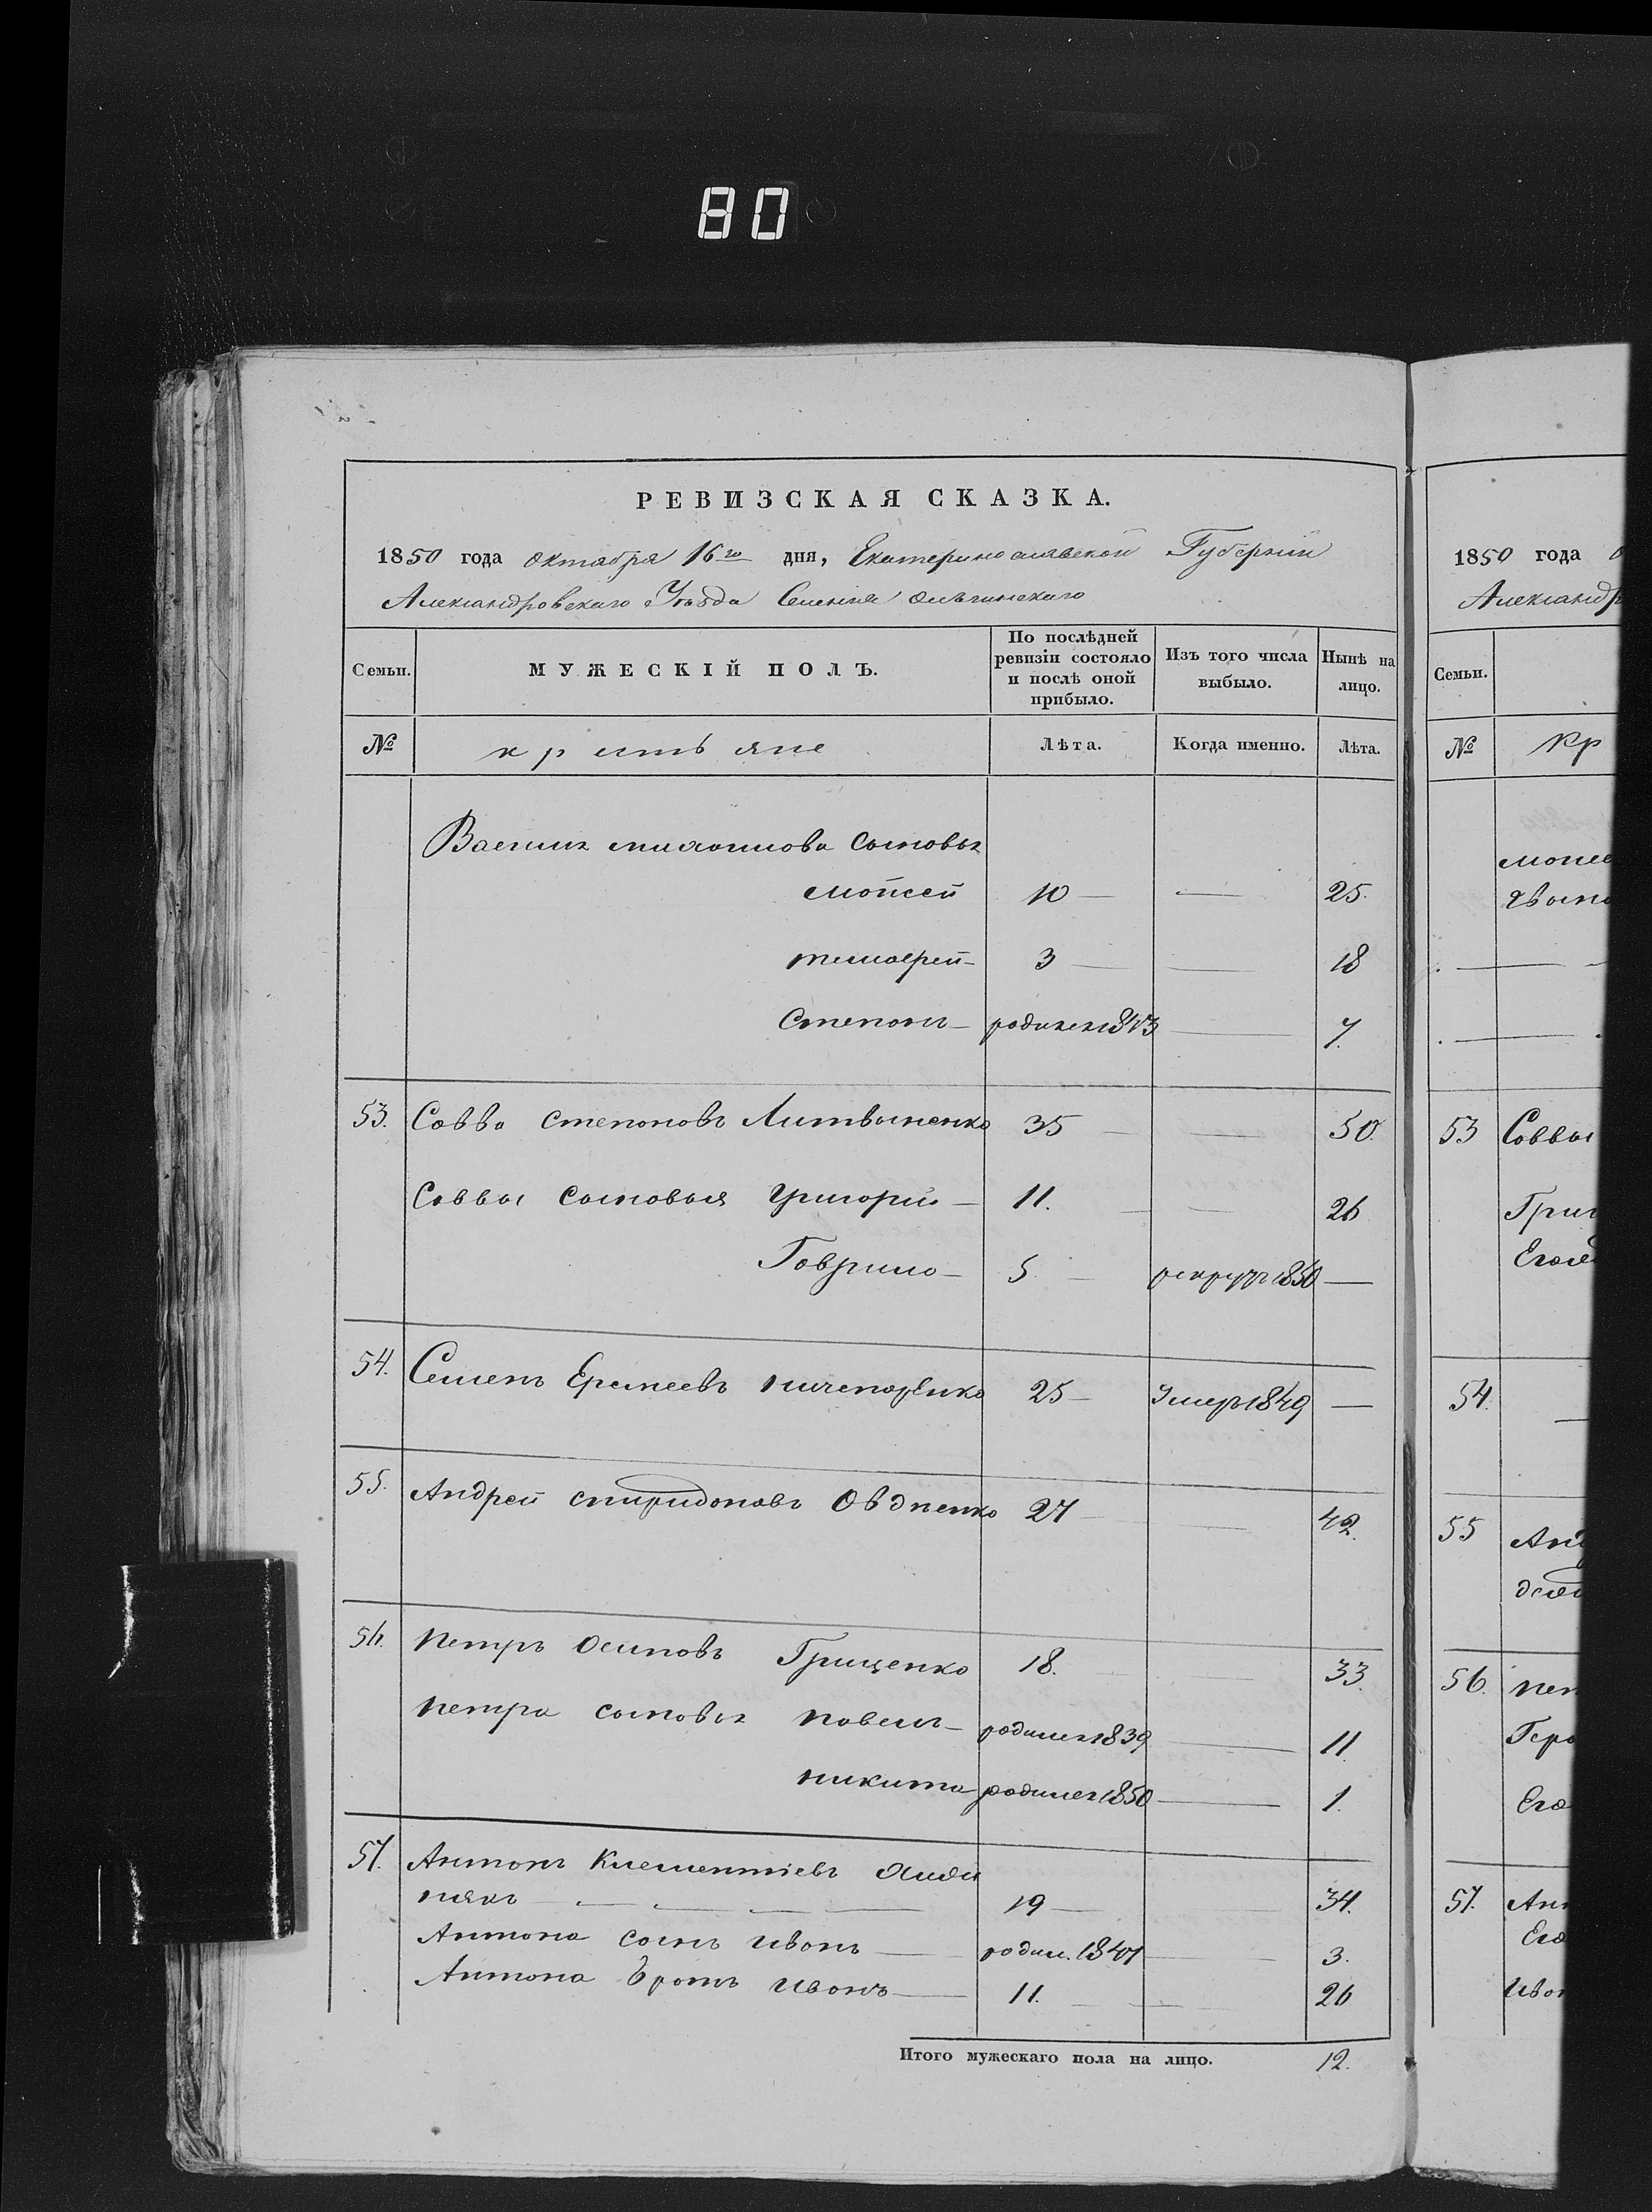 80
РЕВИЗСКАЯ СКАЗКА.
1850 года октября 16го дня, Екатеринославской Губернии
Александровскаго Уезда Селения
Семьи. МУЖЕСКІЙ ПОЛЪ. По послѣдней ревизіи состояло и послѣ оной прибыло. Изъ того числа выбыло. Нынѣ на лицо.
№ Лѣта. Когда именно. Лѣта.
сыновья
мойсей 10 — — 25.
3 — — 18
Степанъ — родился 1843 — 7.
53. Савва степановъ Литвыненко 35 — — 50.
Саввы сыновья Григорий — 11. — — 26
Гаврило — 5 — рекрутъ 1850 —
54. Семенъ Еремеевъ 25 — Умеръ 1849 —
55. Андрей спиридоновъ Овдиенко 27 — — 42.
56. петръ осиповъ Грищенко 18. — — 33.
петра сыновья павелъ — родился 1839 — 11.
никита родился 1850 — 1.
57. Антонъ Клементіевъ
19 — 34.
Антона сынъ иванъ — родил. 1847 — 3.
Антона братъ иванъ — 11. — — 26
Итого мужескаго пола на лицо. 12.
1850 года
Александр
Семьи.
№ Кр
53 Саввы
Григ
54. —
55 Анд
56. пет
Его
57. Ан
Его
ива